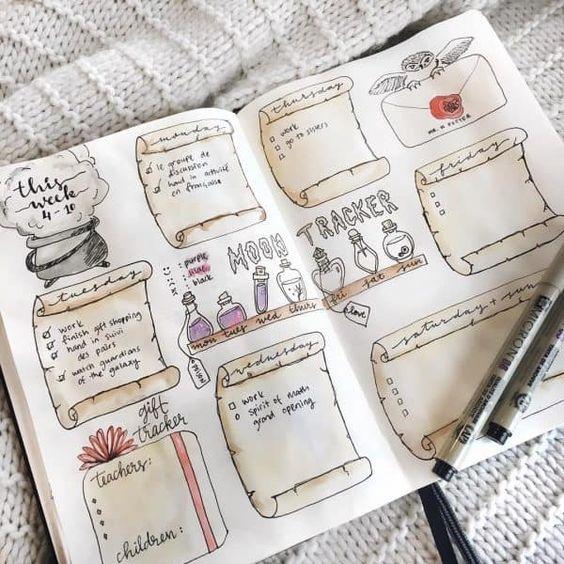 this
week
4-10
monday
le groupe de
discussion
hand in activité
en française
tuesday
work
finish gift shopping
hand in suivi
des pairs
watch guardians
of the galaxy
gift
tracker
teachers:
children:
MOOD
: purple
: black
mon tues wed thurs
poison
wednesday
work
spirit of math
grand opening
thursday
work
go to sisters
TRACKER
fri sat sun
love
MR. H POTTER
friday
saturday + sun
MICRON